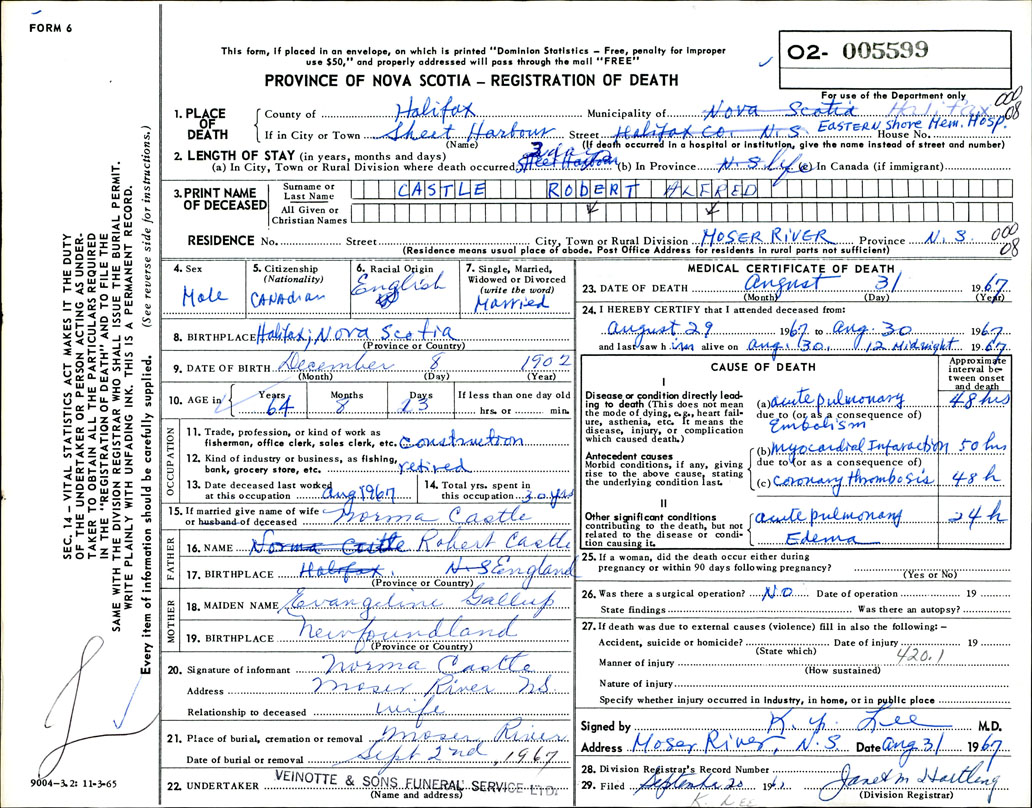 FORM 6
This form, if placed in an envelope, on which is printed "Dominion Statistics – Free, penalty for improper
use $50," and properly addressed will pass through the mail "FREE"
PROVINCE OF NOVA SCOTIA – REGISTRATION OF DEATH
02- 005599
For use of the Department only
000
08
1. PLACE OF DEATH
County of Halifax Municipality of Nova Scotia Halifax
If in City or Town Sheet Harbour Street Halifax Co. N.S. EASTERN Shore Mem. Hosp. House No.
(Name) (If death occurred in a hospital or institution, give the name instead of street and number)
2. LENGTH OF STAY (in years, months and days)
(a) In City, Town or Rural Division where death occurred Sheet Harbour 3 days (b) In Province N.S. life (c) In Canada (if immigrant)
3. PRINT NAME OF DECEASED
Surname or Last Name CASTLE ROBERT ALFRED
All Given or Christian Names
RESIDENCE No. Street City, Town or Rural Division MOSER RIVER Province N.S.
000
08
(Residence means usual place of abode. Post Office Address for residents in rural parts not sufficient)
4. Sex Male
5. Citizenship (Nationality) CANADIAN
6. Racial Origin English
7. Single, Married, Widowed or Divorced (write the word) Married
8. BIRTHPLACE Halifax, Nova Scotia
(Province or Country)
9. DATE OF BIRTH December 8 1902
(Month) (Day) (Year)
10. AGE in Years 64 Months 8 Days 23 If less than one day old hrs. or min.
OCCUPATION
11. Trade, profession, or kind of work as fisherman, office clerk, sales clerk, etc. construction
12. Kind of industry or business, as fishing, bank, grocery store, etc. retired
13. Date deceased last worked at this occupation Aug 1967
14. Total yrs. spent in this occupation 30 yrs
15. If married give name of wife or husband of deceased Norma Castle
FATHER
16. NAME Norma Castle Robert Castle
17. BIRTHPLACE Halifax. N.S England
(Province or Country)
MOTHER
18. MAIDEN NAME Evangeline Gallup
19. BIRTHPLACE Newfoundland
(Province or Country)
20. Signature of informant Norma Castle
Address Moser River NS
Relationship to deceased wife
21. Place of burial, cremation or removal Moser River
Date of burial or removal Sept 2nd, 1967
22. UNDERTAKER VEINOTTE & SONS FUNERAL SERVICE LTD.
(Name and address)
MEDICAL CERTIFICATE OF DEATH
23. DATE OF DEATH August 31 1967
(Month) (Day) (Year)
24. I HEREBY CERTIFY that I attended deceased from:
August 29 1967 to Aug. 30 1967
and last saw him alive on Aug. 30. 12 Midnight 1967
CAUSE OF DEATH
Approximate interval between onset and death
I
Disease or condition directly leading to death (This does not mean the mode of dying, e.g., heart failure, asthenia, etc. It means the disease, injury, or complication which caused death.)
(a) acute pulmonary 48 hrs
due to (or as a consequence of)
Embolism
Antecedent causes
Morbid conditions, if any, giving rise to the above cause, stating the underlying condition last.
(b) Myocardial Infarction 50 hrs
due to (or as a consequence of)
(c) Coronary thrombosis 48 h
II
Other significant conditions
contributing to the death, but not related to the disease or condition causing it.
acute pulmonary 24 h
Edema
25. If a woman, did the death occur either during
pregnancy or within 90 days following pregnancy?
(Yes or No)
26. Was there a surgical operation? NO Date of operation 19
State findings Was there an autopsy?
27. If death was due to external causes (violence) fill in also the following: –
Accident, suicide or homicide? Date of injury 19
(State which) 420.1
Manner of injury
(How sustained)
Nature of injury
Specify whether injury occurred in industry, in home, or in public place
Signed by K. Y. Lee M.D.
Address Moser River, N.S. Date Aug 31 1967
28. Division Registrar's Record Number
29. Filed September 20 19 Janet M Hartling
(Division Registrar)
K. LEE
SEC. 14 – VITAL STATISTICS ACT MAKES IT THE DUTY
OF THE UNDERTAKER OR PERSON ACTING AS UNDER-
TAKER TO OBTAIN ALL THE PARTICULARS REQUIRED
IN THE "REGISTRATION OF DEATH" AND TO FILE THE
SAME WITH THE DIVISION REGISTRAR WHO SHALL ISSUE THE BURIAL PERMIT.
WRITE PLAINLY WITH UNFADING INK. THIS IS A PERMANENT RECORD.
Every item of information should be carefully supplied. (See reverse side for instructions.)
9004-3.2: 11-3-65